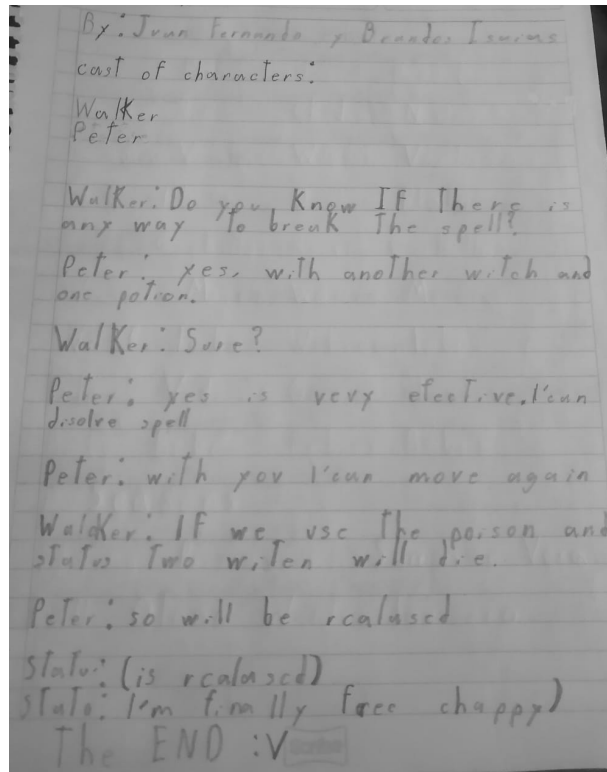 By: Juan Fernando y Brandos Isaias
cast of characters:
Walker
Peter
Walker: Do you Know IF There is
any way To break The spell?
Peter: yes, with another witch and
one potion.
Walker: Sure?
Peter: yes is very efective.I'can
disolve spell
Peter: with you I'can move again
Waldker: IF we use The poison and
status Two witen will die.
Peter: so will be realased
statu: (is realased)
statu: I'm finally free chappy)
The END :V